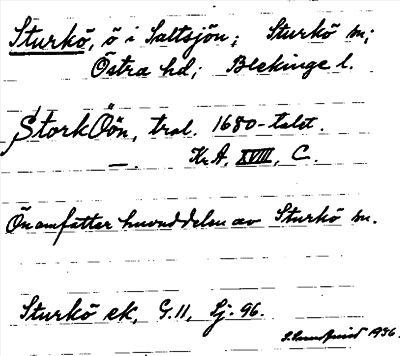 Sturkö, ö i Saltsjön; Sturkö sn;
Östra hd; Blekinge l.
StorkÖön, trol. 1680-talet.
—. Kr.A, XVIII, C.
Ön omfattar huvuddelen av Sturkö sn.
Sturkö ek, G.11, Lj. 96.
1936.